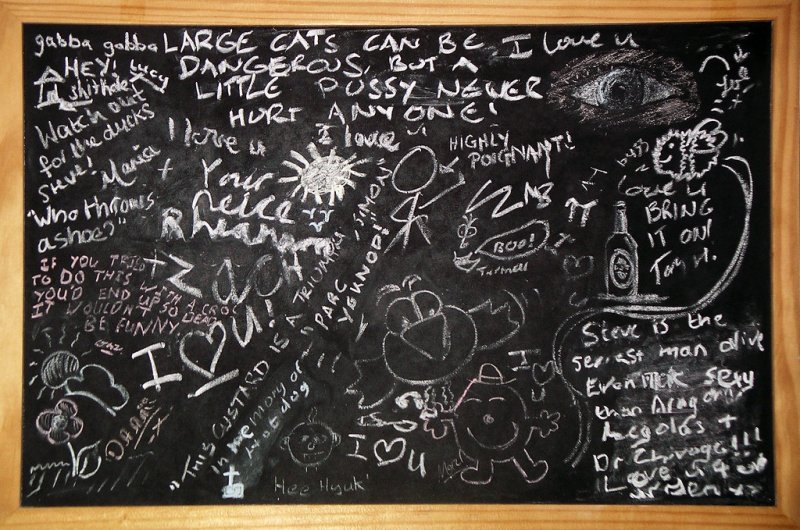 gabba gabba
HEY! Lucy
shithole
LARGE CATS CAN BE
DANGEROUS, BUT A
LITTLE PUSSY NEVER
HURT ANYONE!
I love u
Watch out
for the ducks
Steve!
Maria
I love u
I love u
HIGHLY
POIGNANT!
buzz
"Who throws
a shoe?"
+
Your
neice
Rhiannon
+ Zach
I ♡ U!
love u
BRING
IT ON!
Tom H.
BOO!
IF YOU TRIED
TO DO THIS
YOU'D END UP WITH A CROC
IT WOULDN'T SO
DEAD
BE FUNNY
"THIS CUSTARD IS A TRIUMPH, SIMON"
"PARC
YEKNOD!!"
In memory of
Hotdog
Hee Hyuk'
I ♡ U
I ♡ U
Steve is the
sexiest man alive
Even more sexy
than Aragorn,
Legolas +
Dr Zhivago!!!
Love